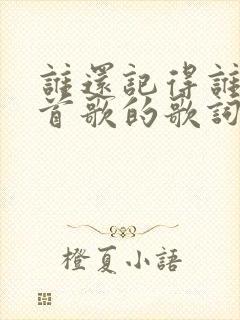 誰還記得誰
首歌的歌詞
橙夏小語